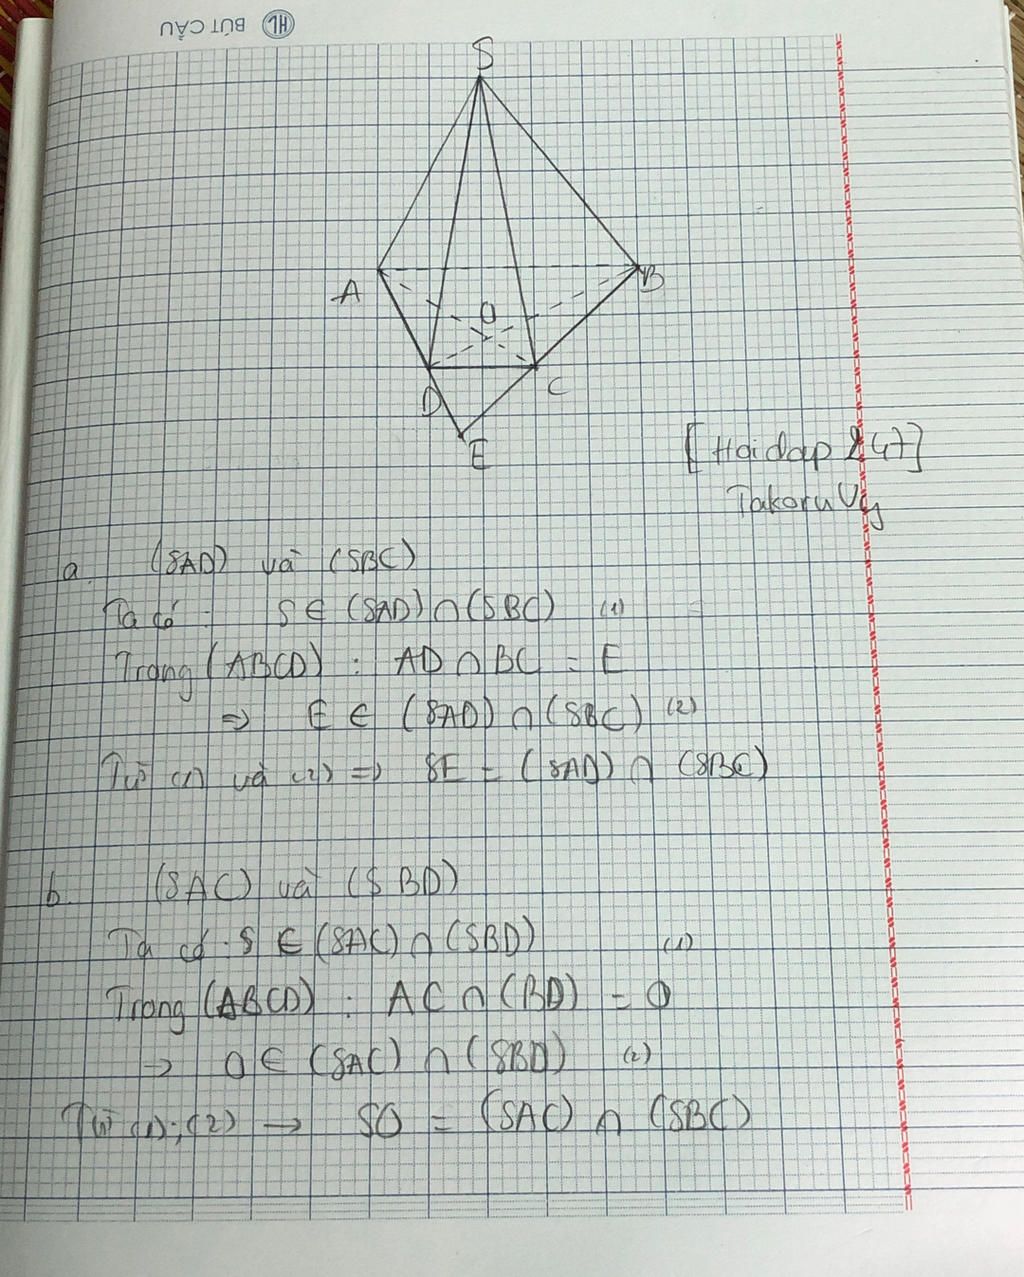 HL BÚT CẦU
S
A
B
O
D
C
E
[Hoidap 247]
TakoruVy
a. (SAD) và (SBC)
Ta có: S ∈ (SAD) ∩ (SBC) (1)
Trong (ABCD): AD ∩ BC = E
=> E ∈ (SAD) ∩ (SBC) (2)
Từ (1) và (2) => SE = (SAD) ∩ (SBC)
b. (SAC) và (SBD)
Ta có: S ∈ (SAC) ∩ (SBD) (1)
Trong (ABCD): AC ∩ (BD) = O
-> O ∈ (SAC) ∩ (SBD) (2)
Từ (1);(2) -> SO = (SAC) ∩ (SBC)